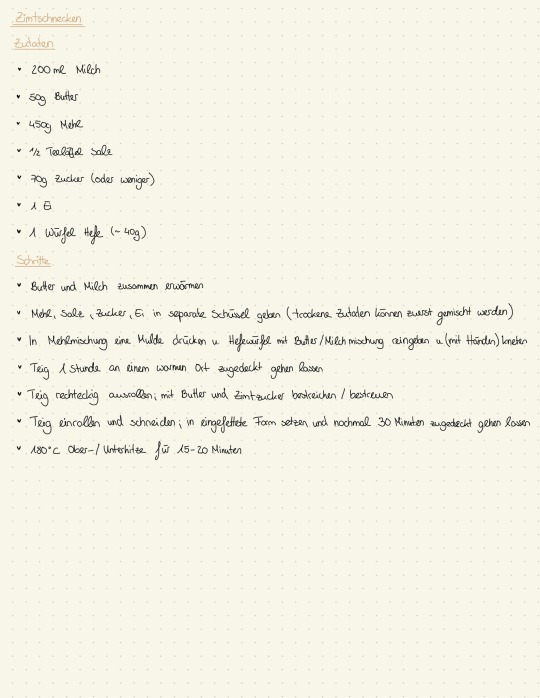 Zimtschnecken
Zutaten
200 ml Milch
50g Butter
450g Mehl
1/2 Teelöffel Salz
70g Zucker (oder weniger)
1 Ei
1 Würfel Hefe (~ 40g)
Schritte
Butter und Milch zusammen erwärmen
Mehl, Salz, Zucker, Ei in separate Schüssel geben (trockene Zutaten können zuerst gemischt werden)
In Mehlmischung eine Mulde drücken u. Hefewürfel mit Butter/Milchmischung reingeben u. (mit Händen) kneten
Teig 1 Stunde an einem warmen Ort zugedeckt gehen lassen
Teig rechteckig ausrollen; mit Butter und Zimtzucker bestreichen / bestreuen
Teig einrollen und schneiden; in eingefettete Form setzen und nochmal 30 Minuten zugedeckt gehen lassen
180°C Ober-/Unterhitze für 15-20 Minuten